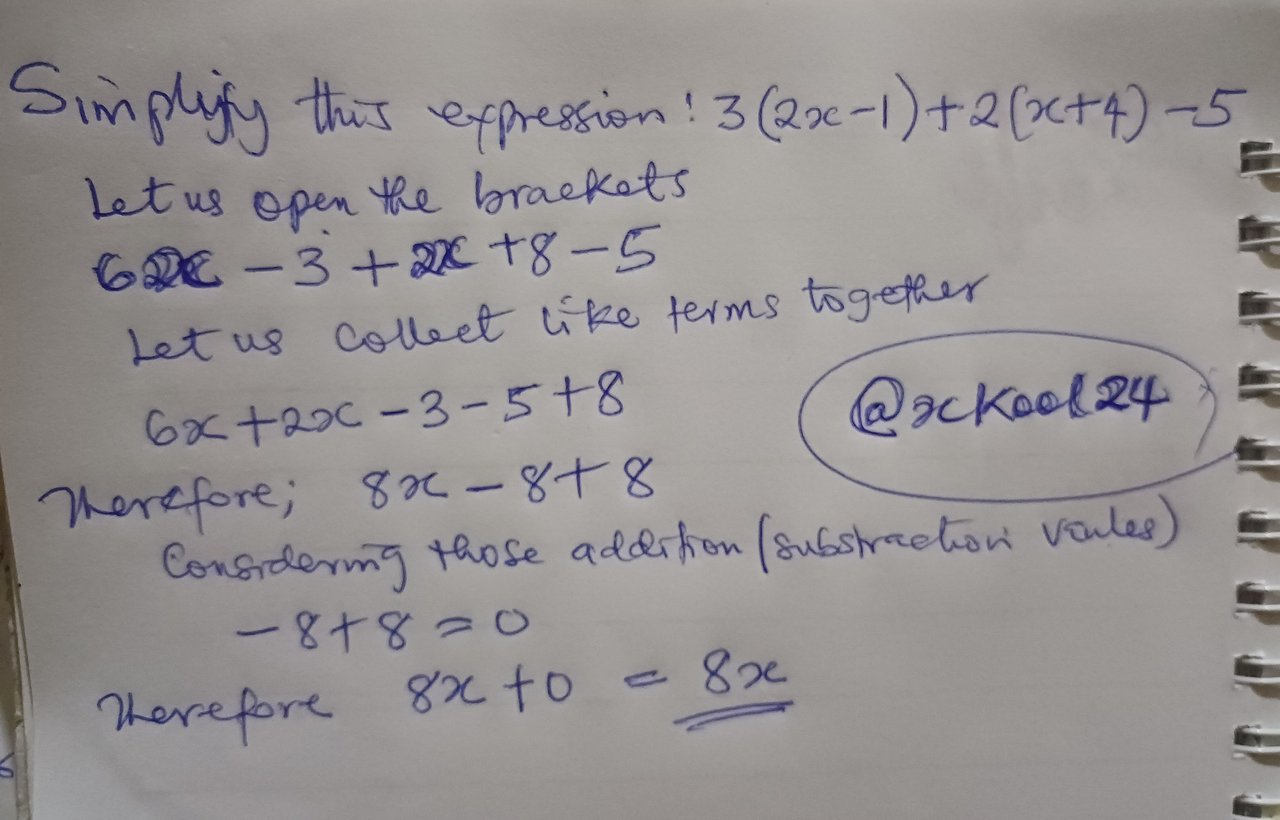 Simplify this expression: 3(2x-1)+2(x+4)-5
Let us open the brackets
6x - 3 + 2x + 8 - 5
Let us collect like terms together
6x + 2x - 3 - 5 + 8
@xckool24
Therefore; 8x - 8 + 8
Considering those addition (substraction
-8 + 8 = 0
Therefore 8x + 0 = 8x